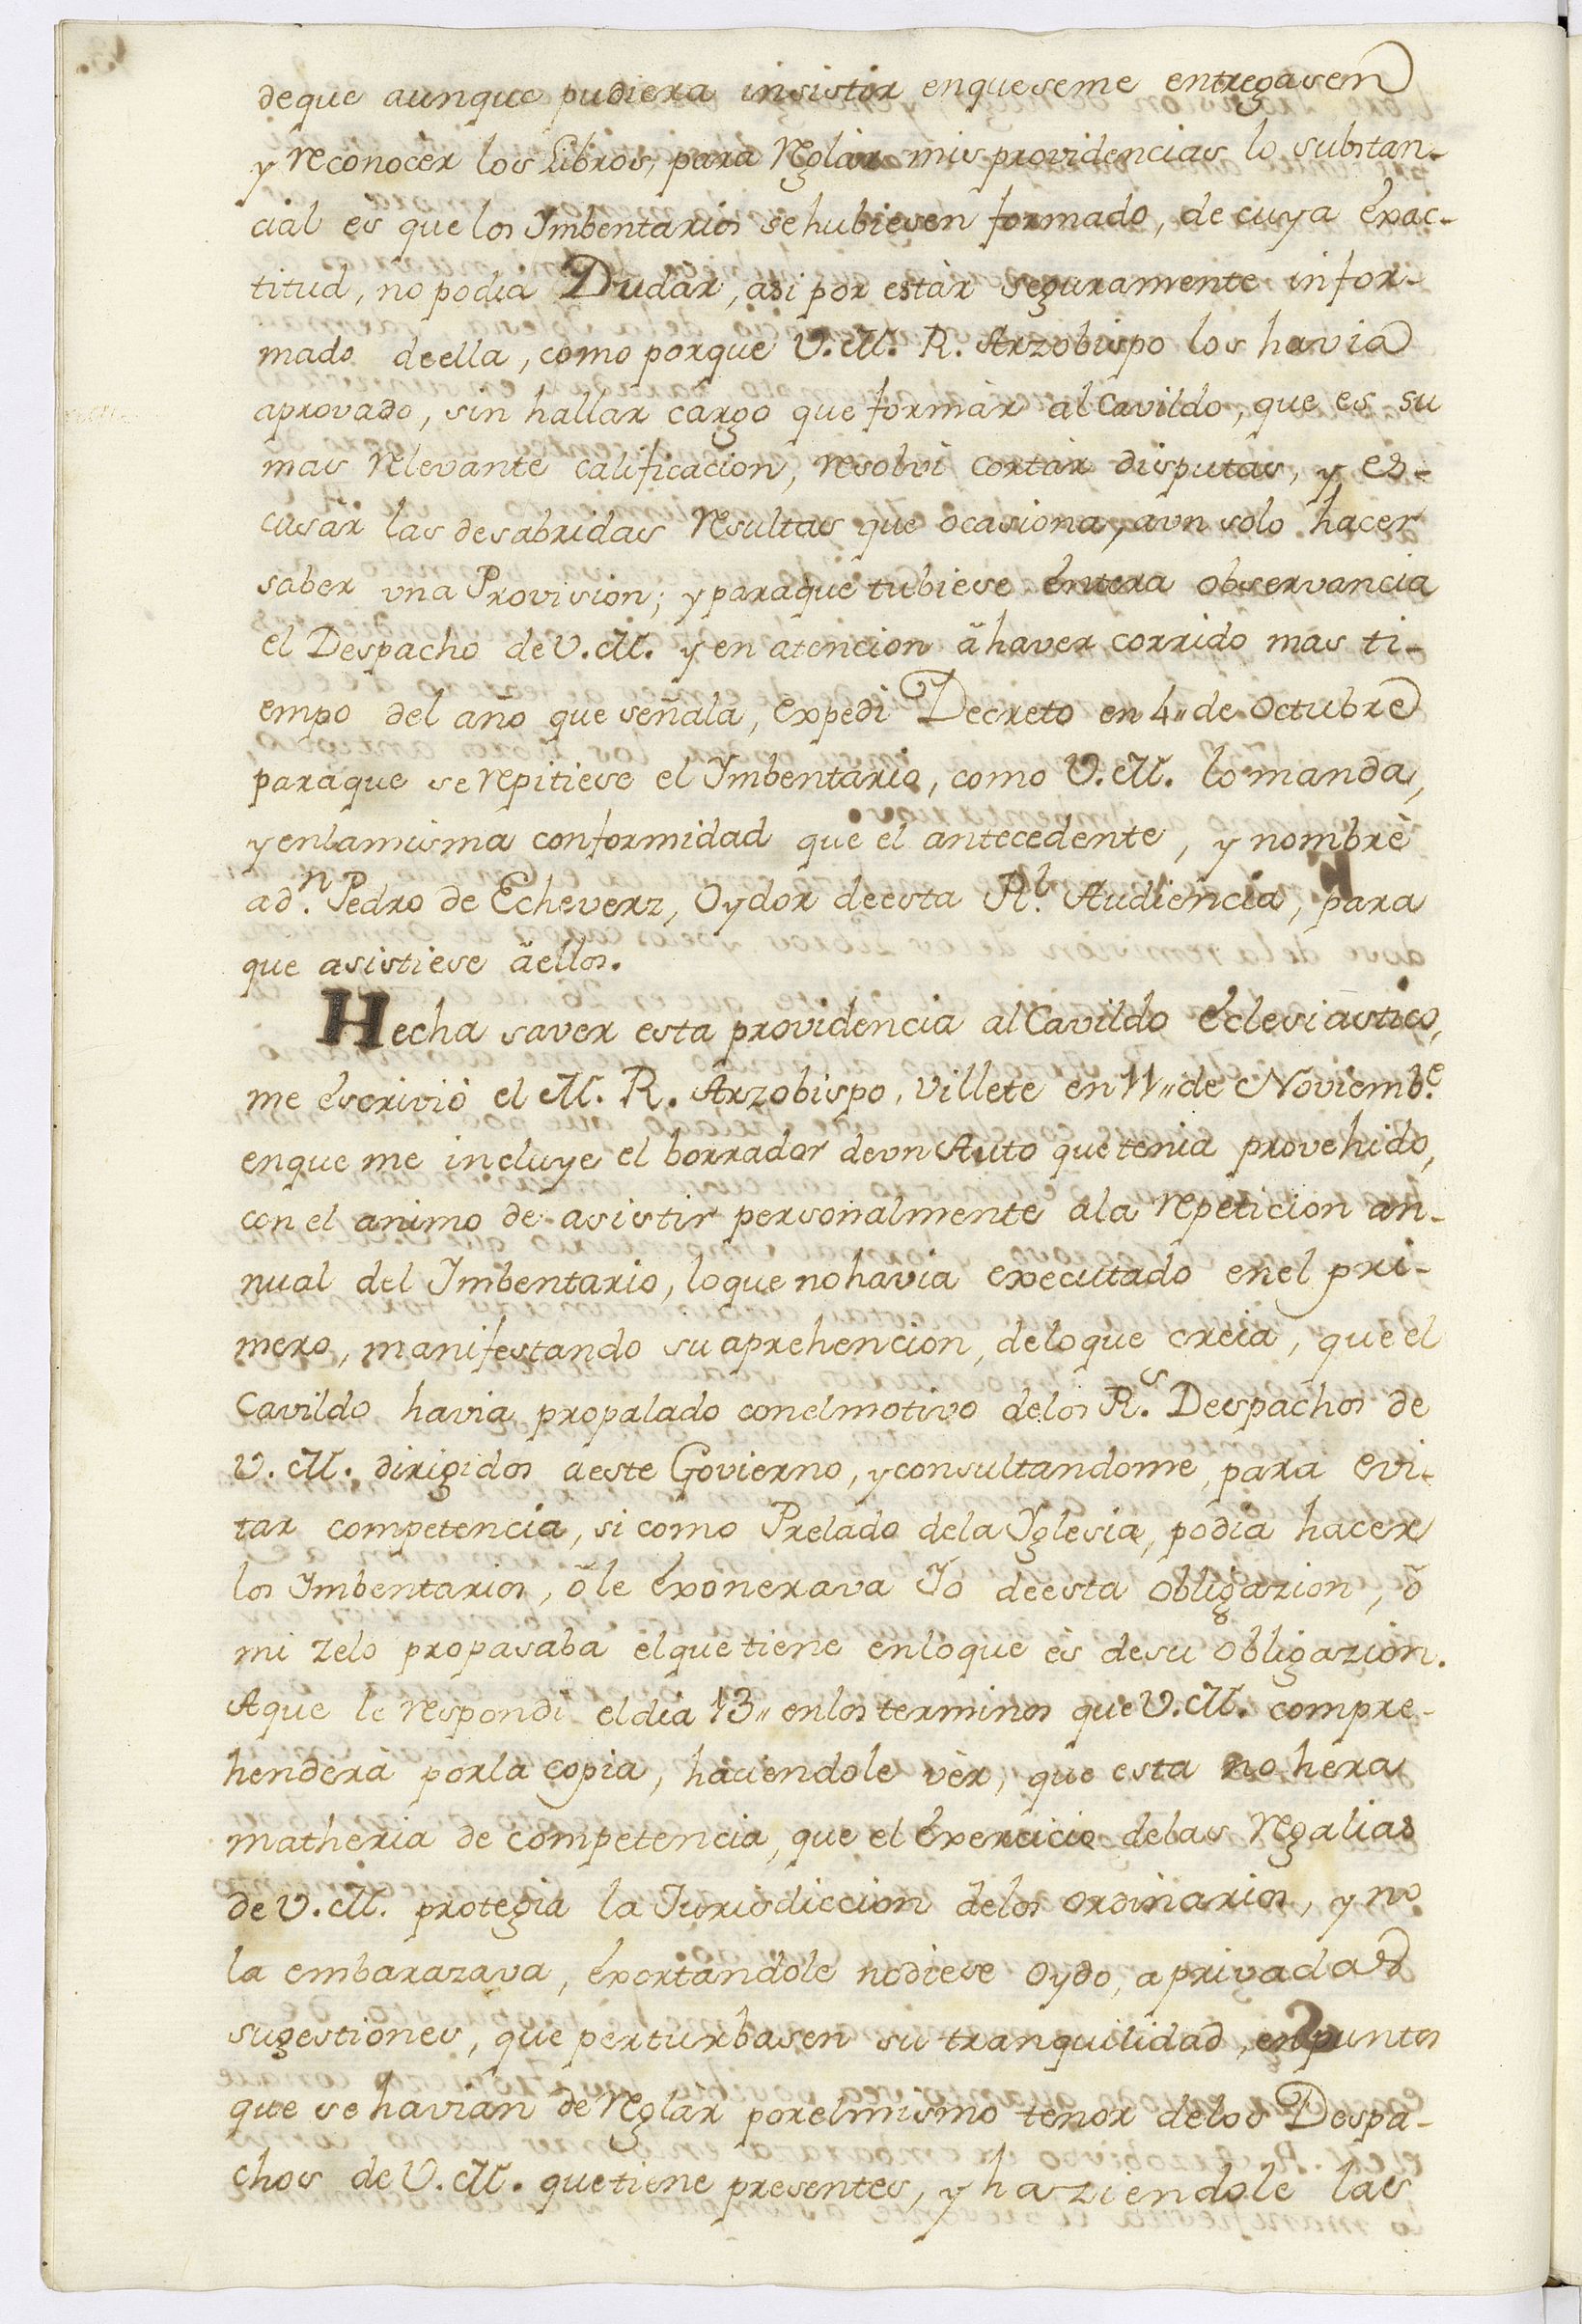 deque aunque pudiera insistir enqueseme entregasen
y reconocer los Libros, para reglar mis providencias lo substan-
cial es que los Imbentarios sehubiesen formado, de cuya exac-
titud, no podia Dudar, asi por estàr seguramente infor-
mado deella, como porque V.M. R. Arzobispo los havia
aprovado, sin hallar cargo que formàr al Cavildo, que es su
mas relevante calificacion, resolvi cortàr disputas, y es-
cusàr las desabridas resultas que ocasiona, aun solo hacer
saber vna Provision; y paraque tubiese entera observancia
el Despacho de V.M. y en atencion â haver corrido mas ti-
empo del año que señala, expedi Decreto en 4,, de Octubre
paraque se repitiese el Imbentario, como V.M. lo manda,
y enlamisma conformidad que el antecedente, y nombrè
a dⁿ. Pedro de Echeverz, Oydor deesta Rˡ. Audiencia, para
que asistiese âellos.
Hecha saver esta providencia al Cavildo Eclesiastico,
me escriviò el M. R. Arzobispo, villete en 11,, de Noviembᵉ.
enque me incluye el borrador deun Auto que tenia provehido,
con el animo de asistir personalmente ala repeticion an-
nual del Imbentario, loque nohavia executado enel pri-
mero, manifestando su aprehencion, deloque creia, que el
Cavildo havia propalado conelmotivo delos Rˢ. Despachos de
V.M. dirigidos aeste Govierno, y consultandome, para evi-
tar competencia, si como Prelado dela Yglesia, podia hacer
los Imbentarios, ô le exonerava Io deesta obligazion, ô
mi zelo propasaba elquetiene enloque ès desu obligazion.
Aque le respondi eldia 13,, enlos terminos que V.M. compre-
henderà porla copia, haciendole vèr, que esta no hera
matheria de competencia, que el exercicio delas regalias
de V.M. protegia la Iurisdiccion delos ordinarios, y no
la embarazava, exortandole nodiese oydo, a privadas
sugestiones, que perturbasen su tranquilidad, en puntos
que se havian de reglar porelmismo tenor delos Despa-
chos de V.M. quetiene presentes, y haziendole las